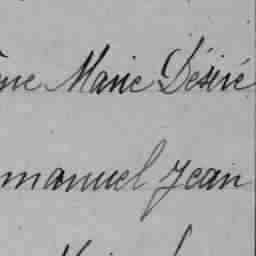 Marie Désiré
manuel Jean